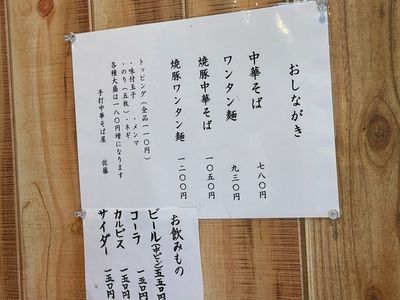 おしながき
中華そば 七八〇円
ワンタン麺 九三〇円
焼豚中華そば 一〇五〇円
焼豚ワンタン麺 一二〇〇円
トッピング(全品一一〇円)
・味付玉子 ・メンマ
・のり(五枚)・ネギ
各種大盛は一八〇円増になります
手打中華そば屋 佐藤
お飲みもの
ビール(中ビン)五五〇円
コーラ 一五〇円
カルピス 一五〇円
サイダー 一五〇円